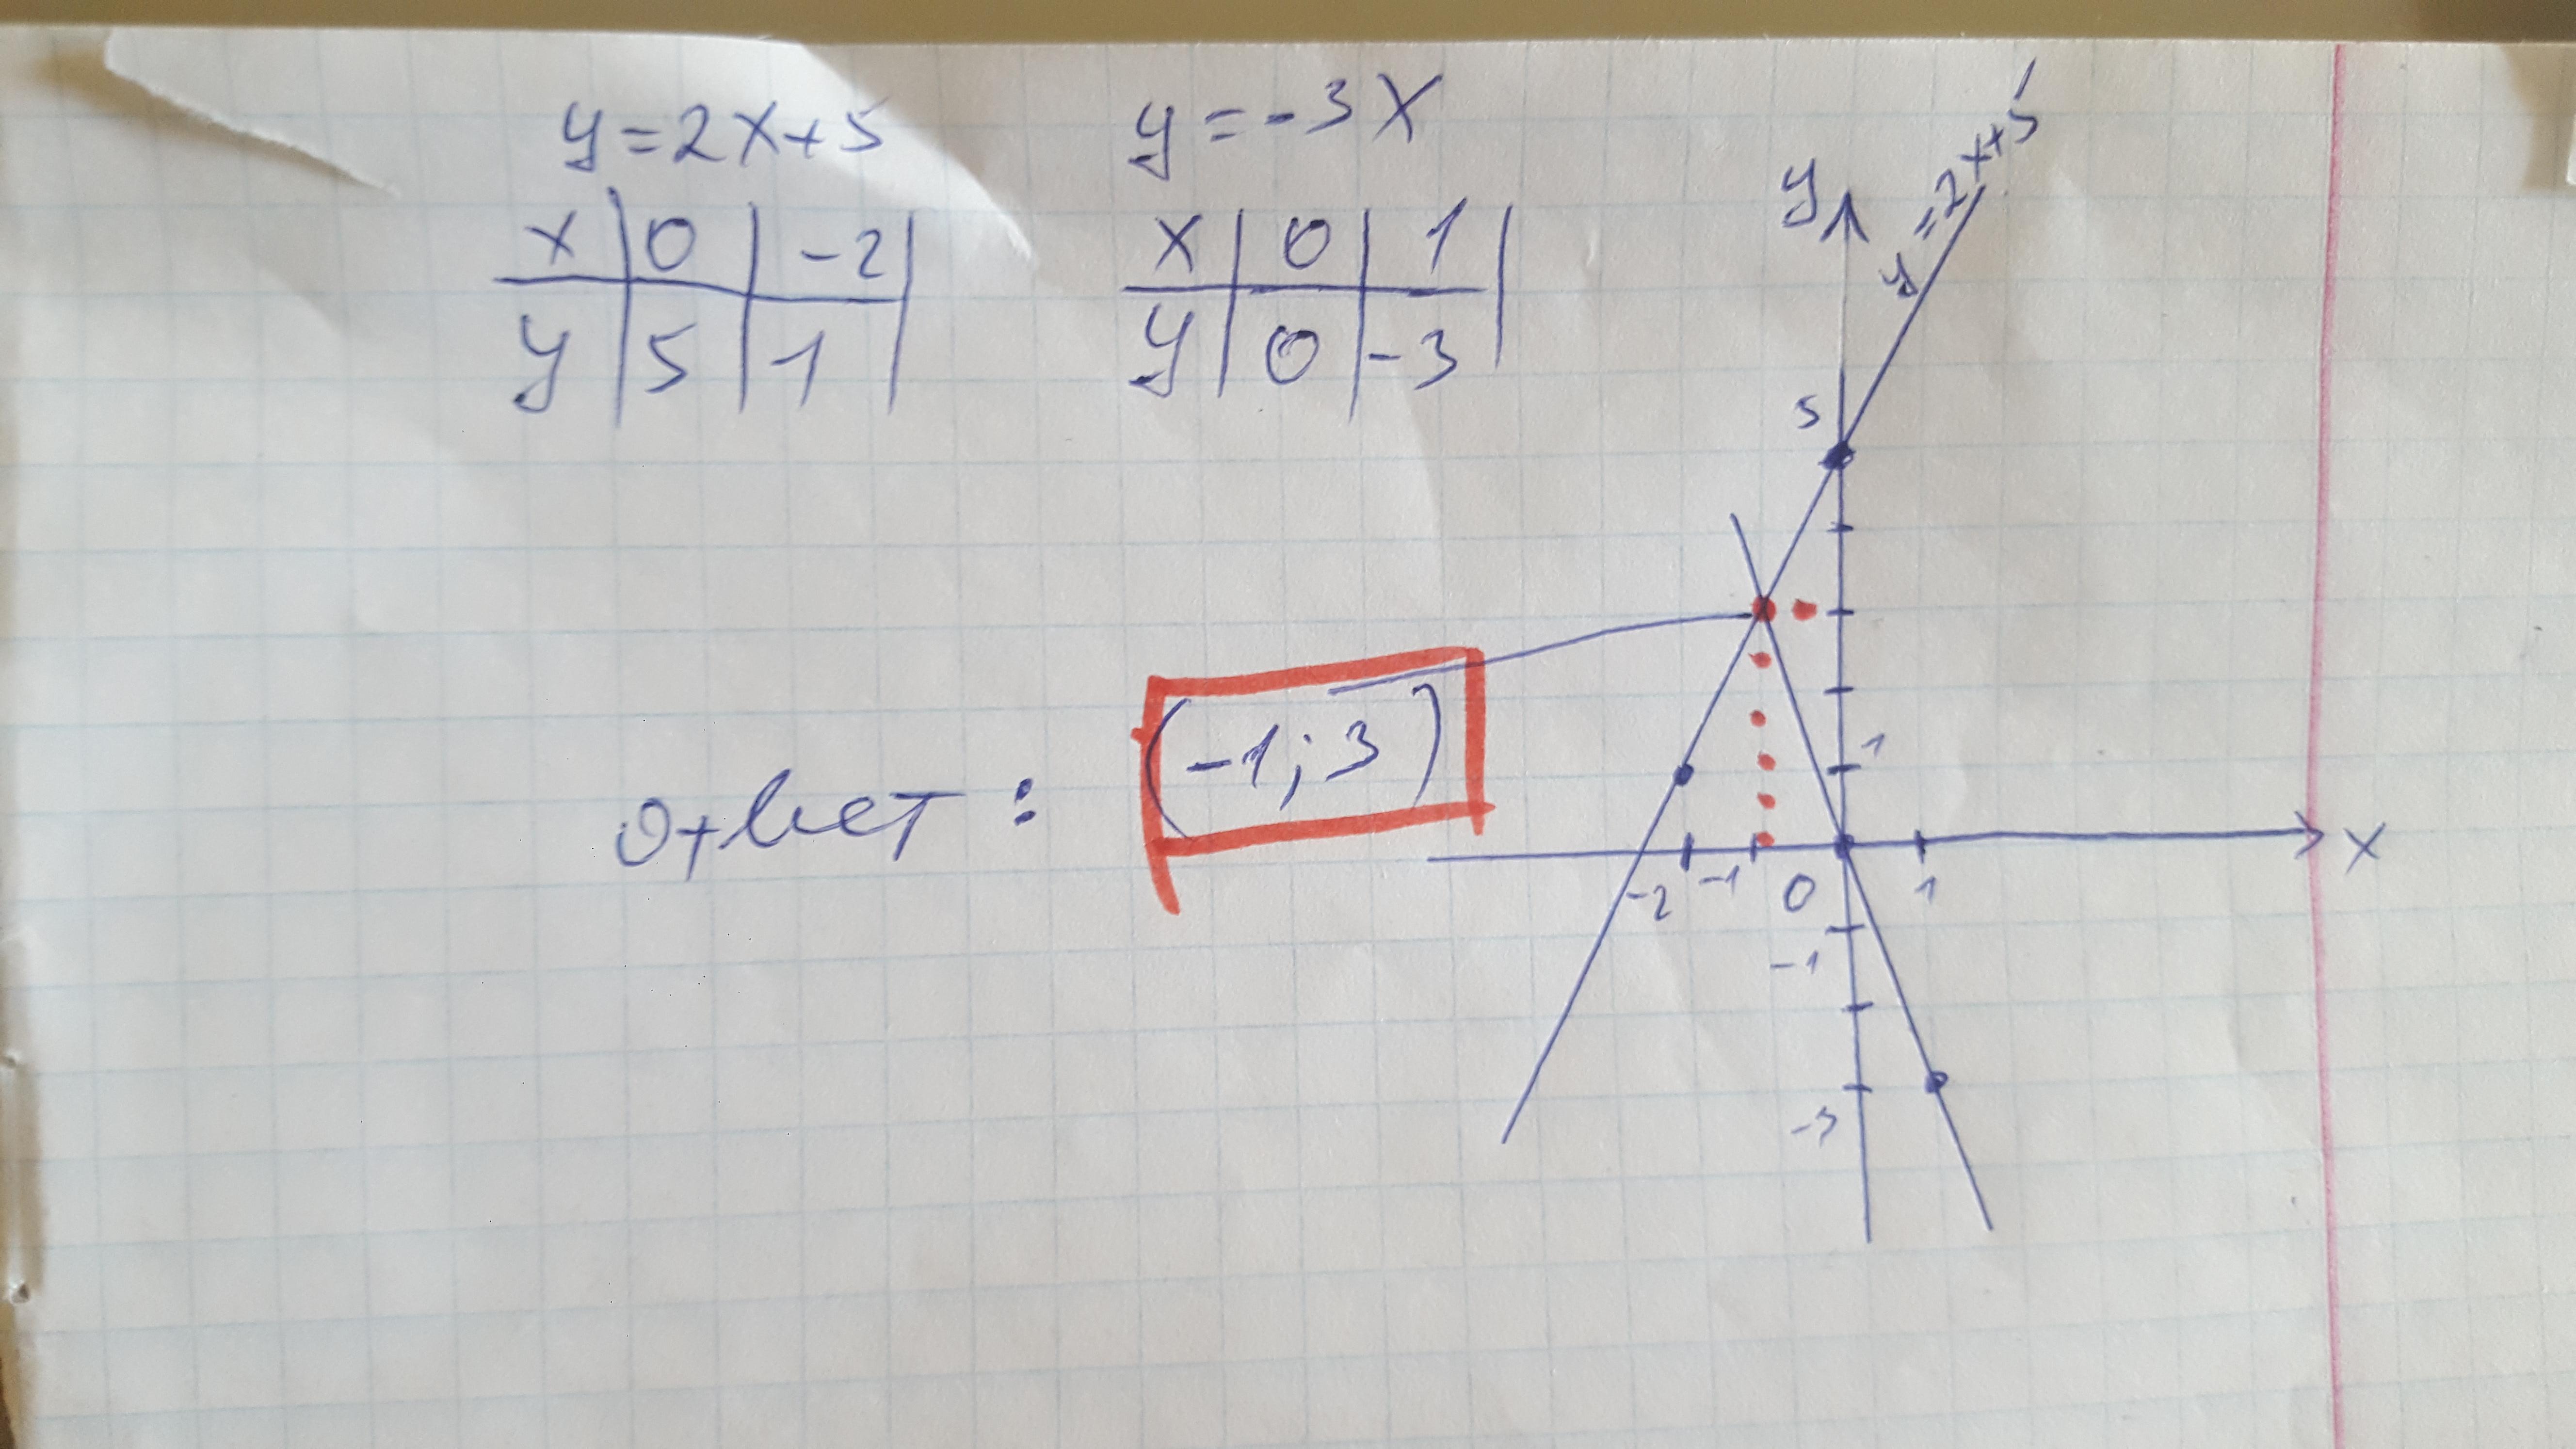 y=2x+5
x | 0 | -2
y | 5 | 1
y=-3x
x | 0 | 1
y | 0 | -3
y
y=2x+5
5
1
-2 -1 0 1 x
-1
-3
ответ: (-1; 3)